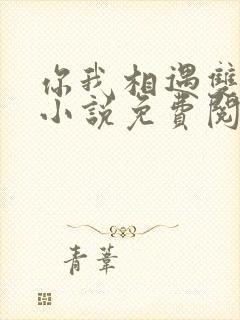 你我相遇雙
小說免費閱
青葦